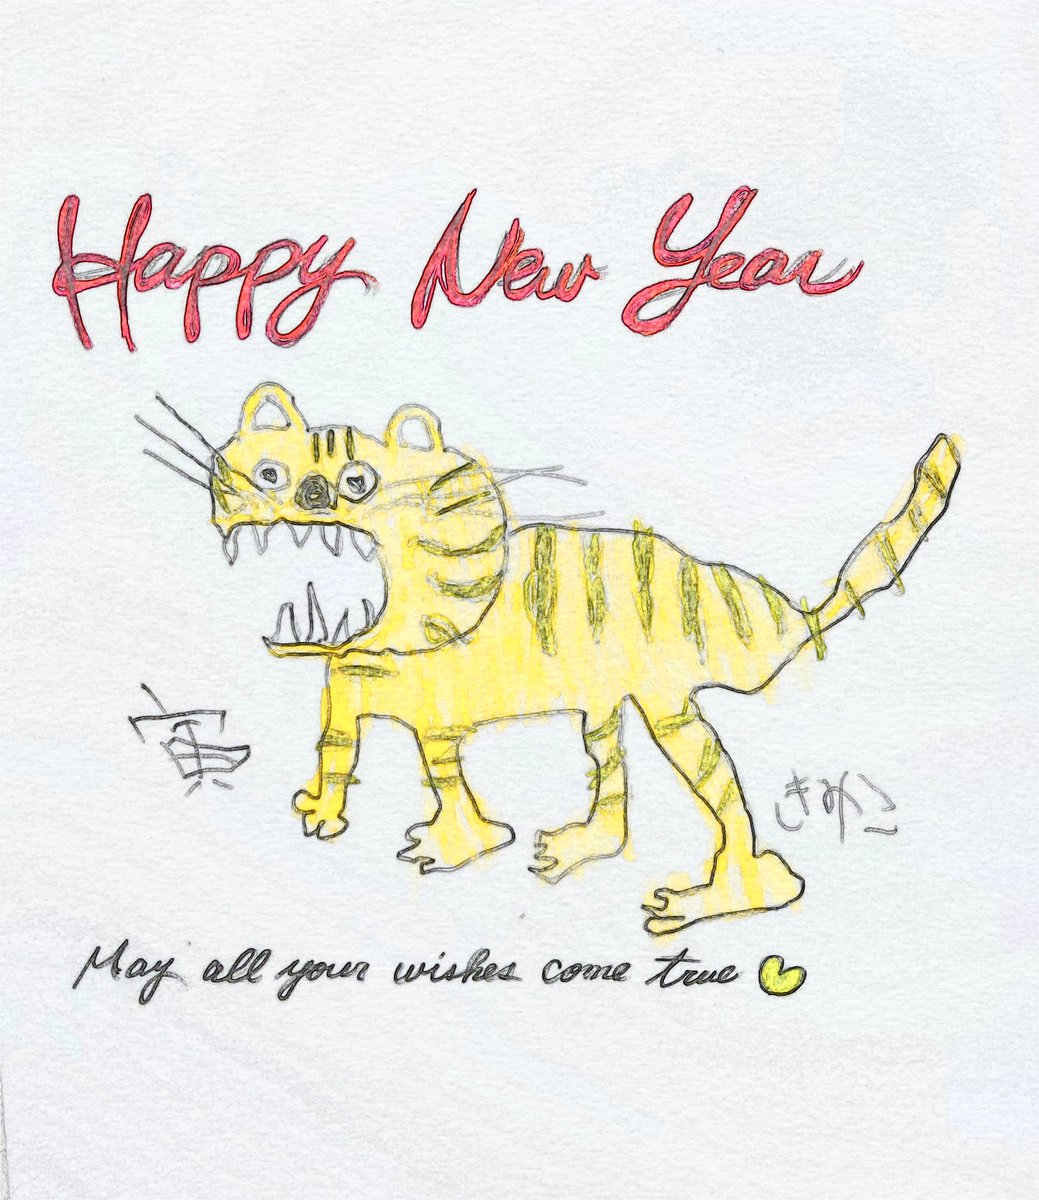 Happy New Year
寅
きみこ
May all your wishes come true